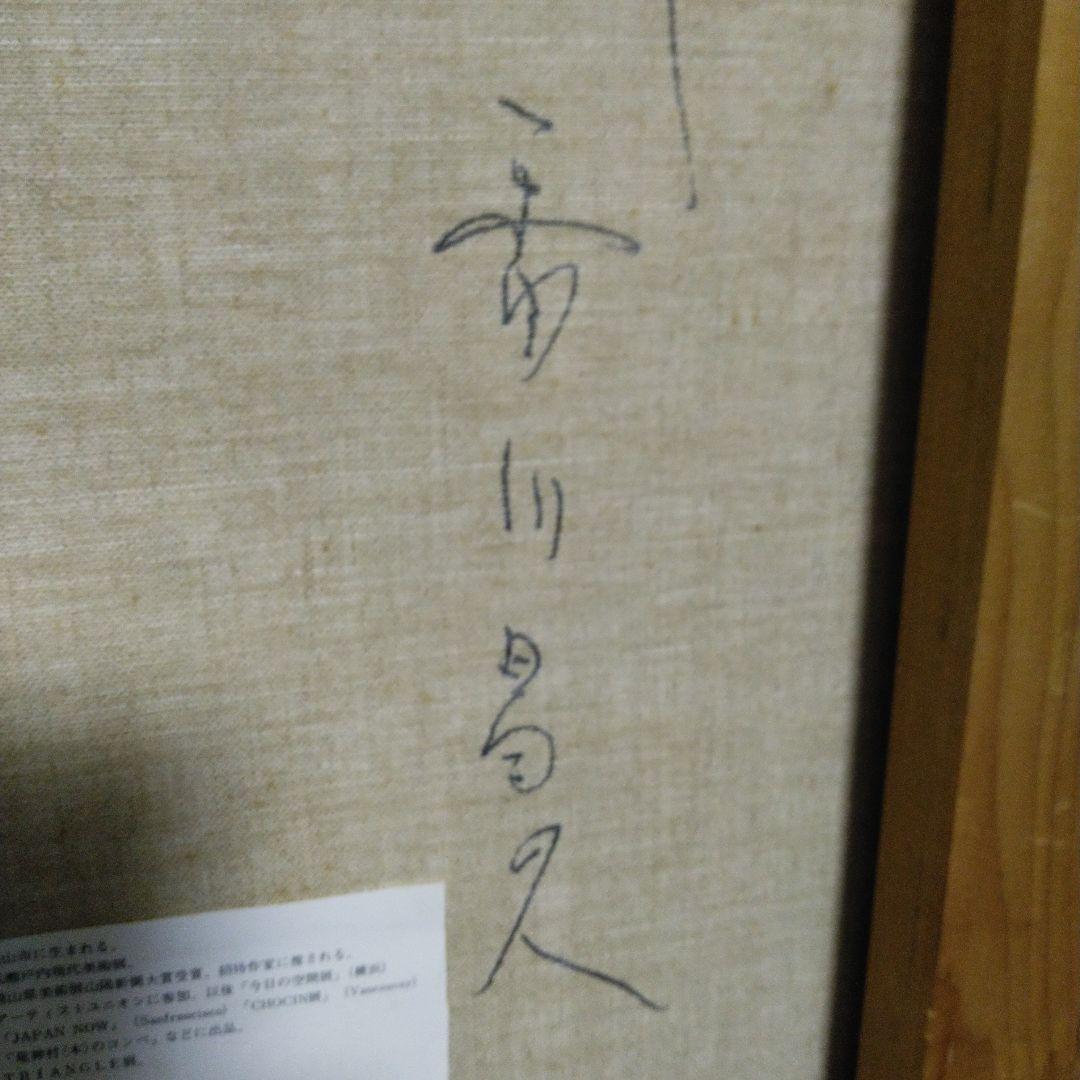 市川昌久
山市に生まれる。
瀬戸内現代美術展。
山県美術展山陽新聞大賞受賞、招待作家に推される。
アーティストユニオンに参加、以後「今日の空間展」(横浜)
「JAPAN NOW」 (Sanfrancisco) 「CHOCIN展」 (Vancouver)
(木)のコンペ」などに出品。
TRIANGLE展